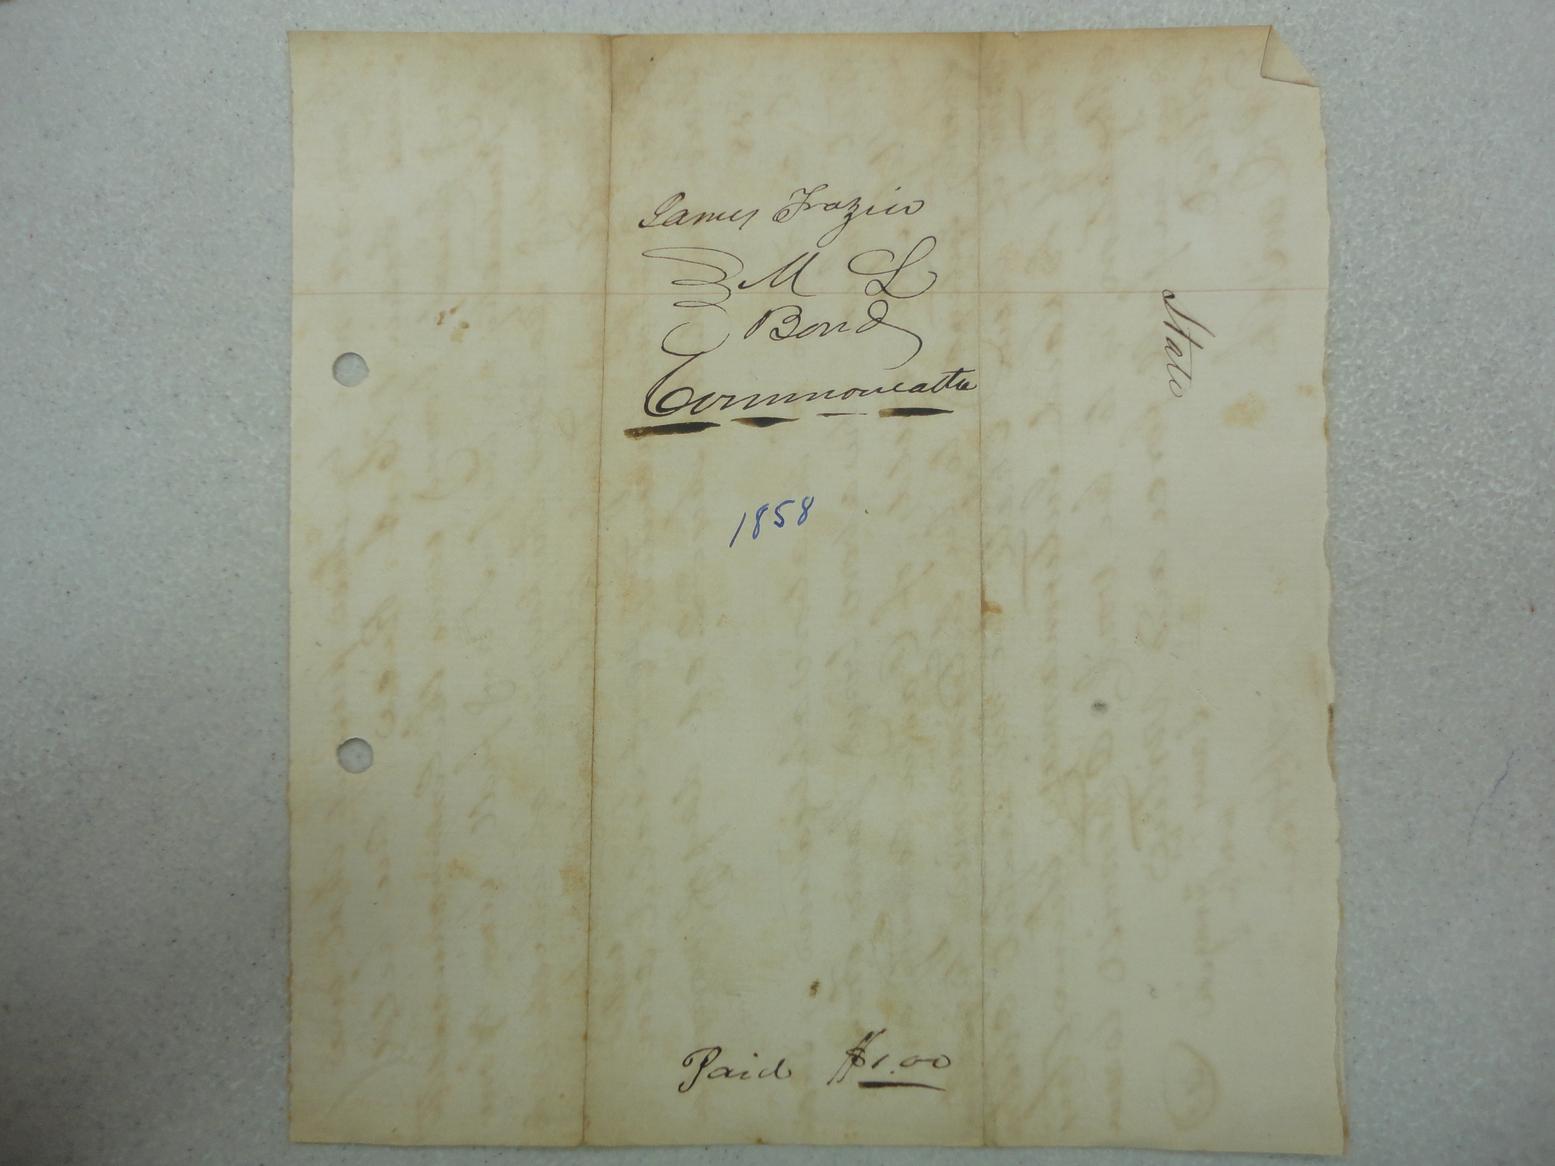 James Frazier
M L
Bond
Commonwealth
1858
Paid $1.00
State